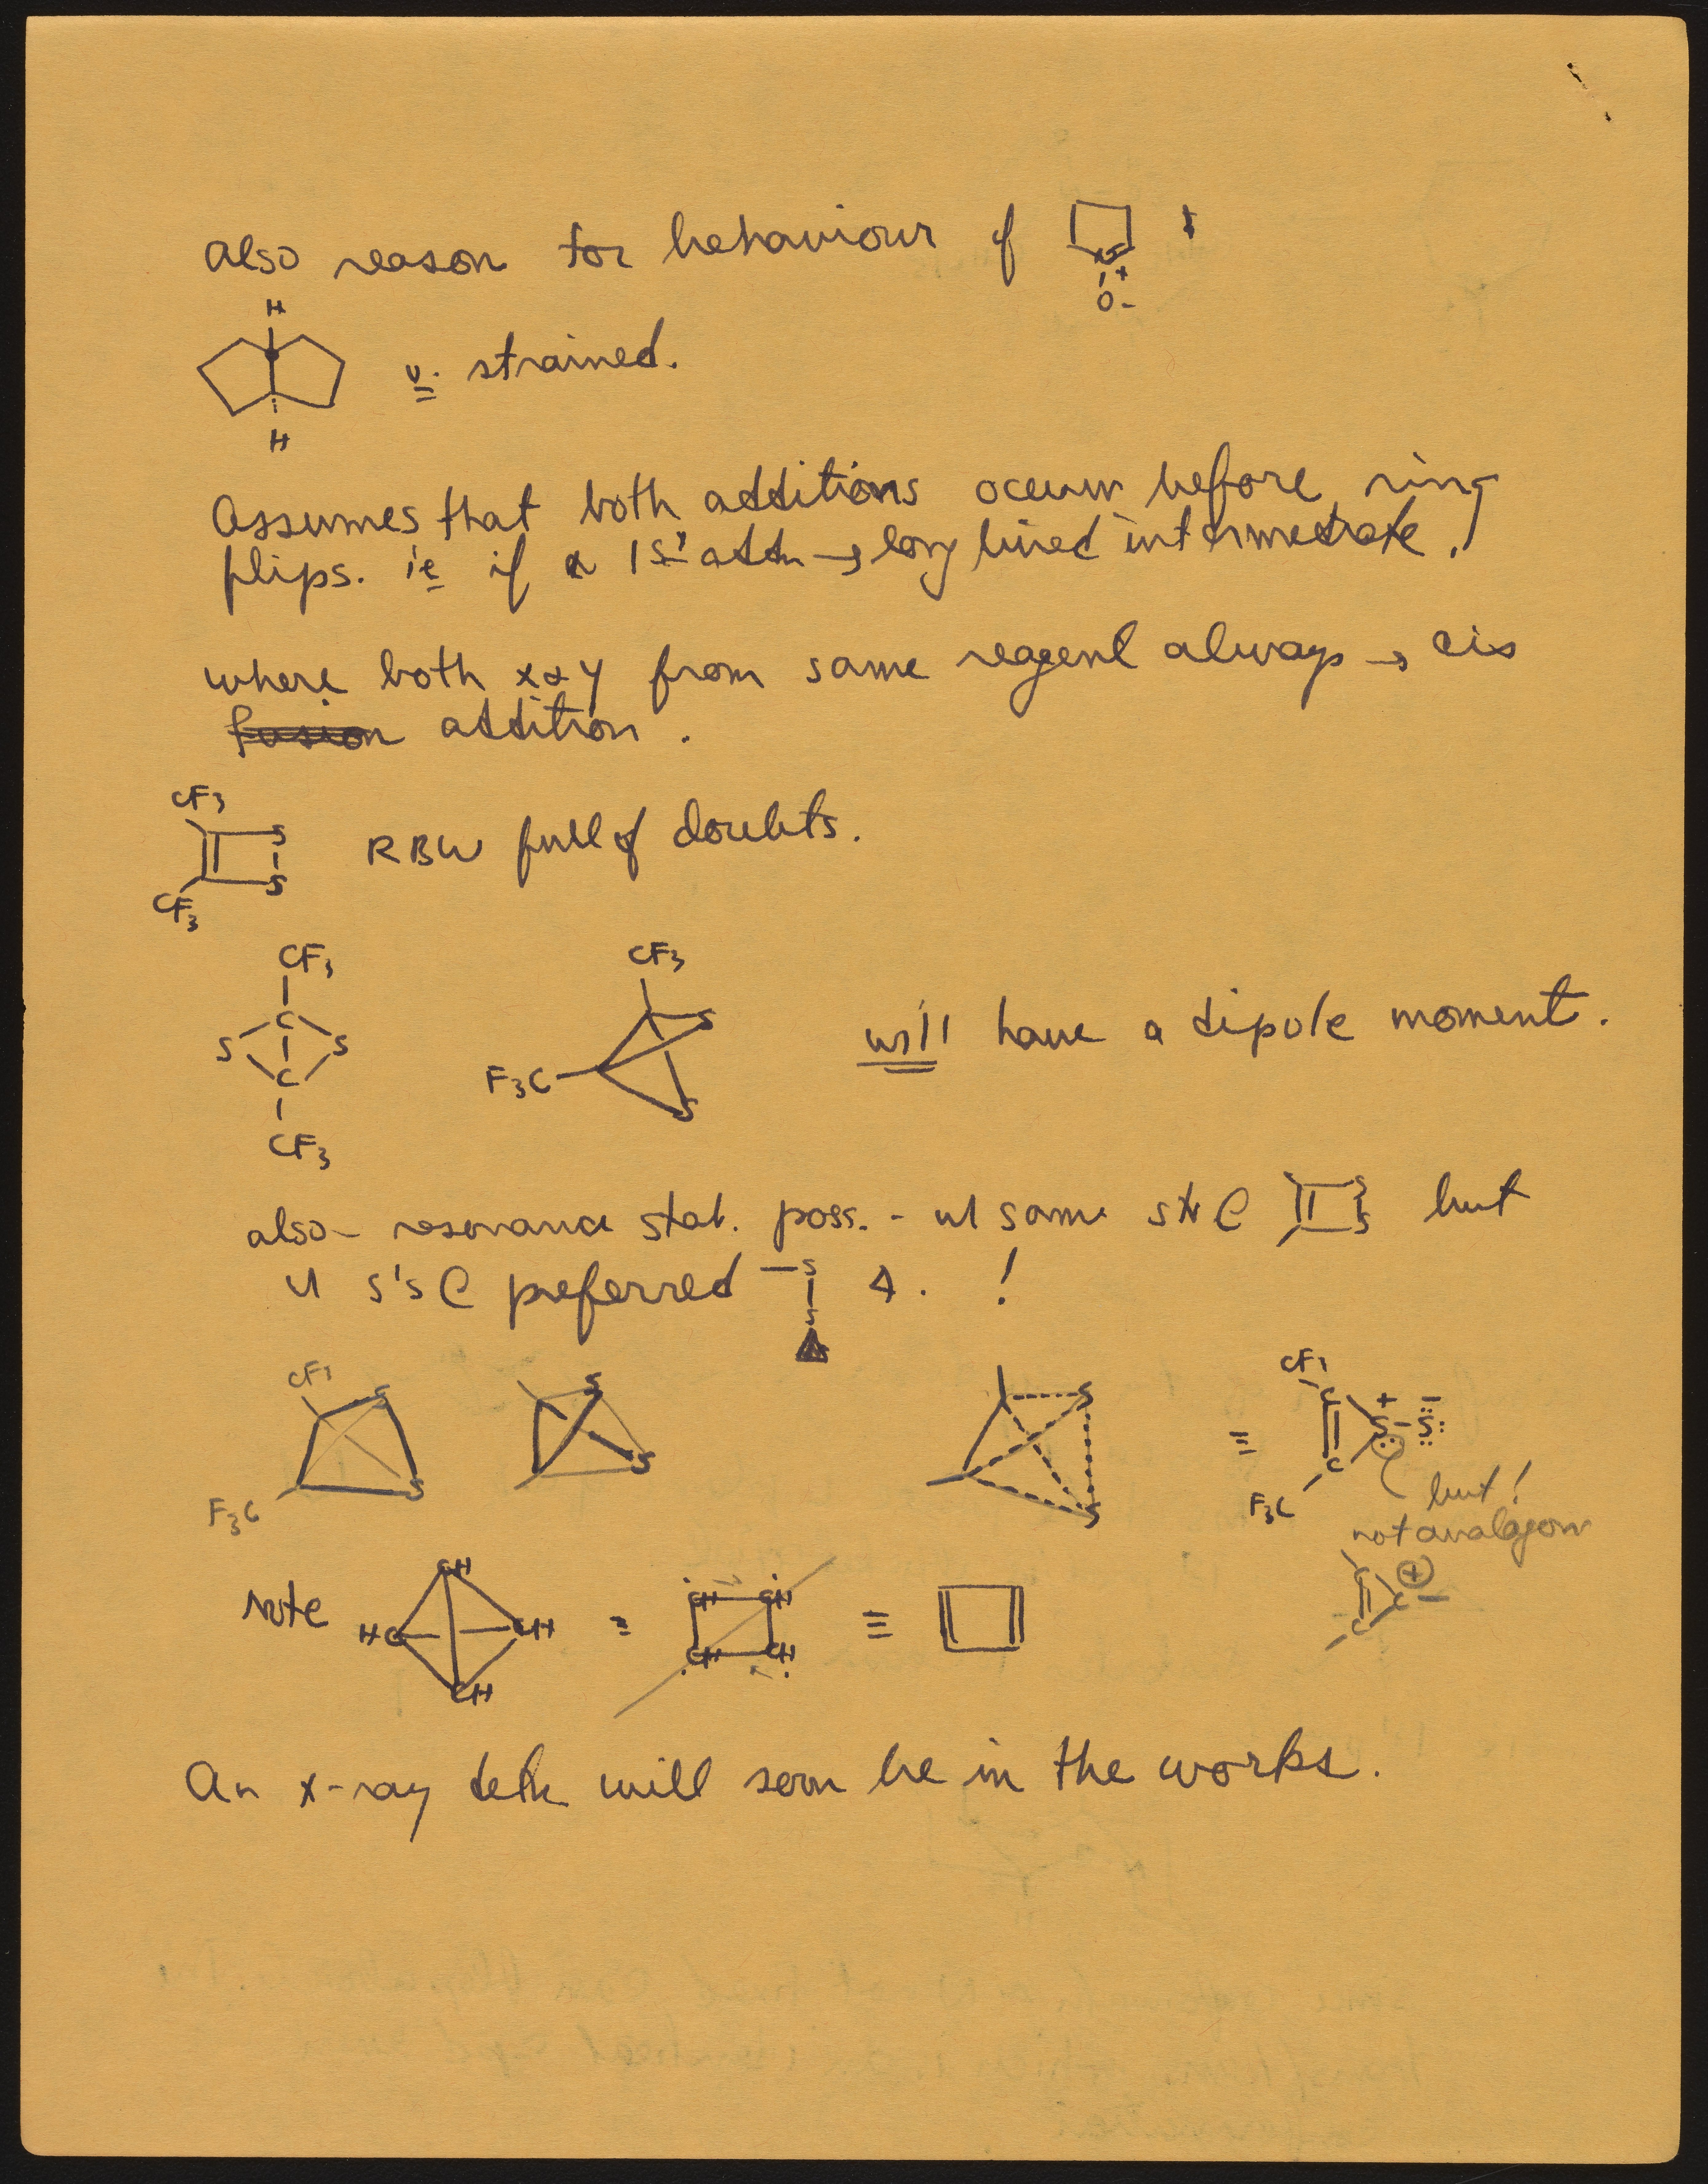 also reason for behaviour of
S
+
O-
H
v. strained.
H
Assumes that both additions occur before ring
flips. ie if 1st addn → long lived intermediate.
where both x & y from same reagent always → cis
fusion addition.
CF3
S
S
CF3
RBW full of doubts.
CF3
C
S S
C
CF3
CF3
S
F3C
S
will have a dipole moment.
also - resonance stab. poss. - w same S S but
S's preferred -S
S
!
CF3
S
F3C
S
S
S
S
S
≡
CF3
C
+ -
S-S:
C
F3C
but!
not analagous
Note
CH
HC CH
CH
=
CH CH
CH CH
≡
C
C
C
+
An x-ray detn will soon be in the works.